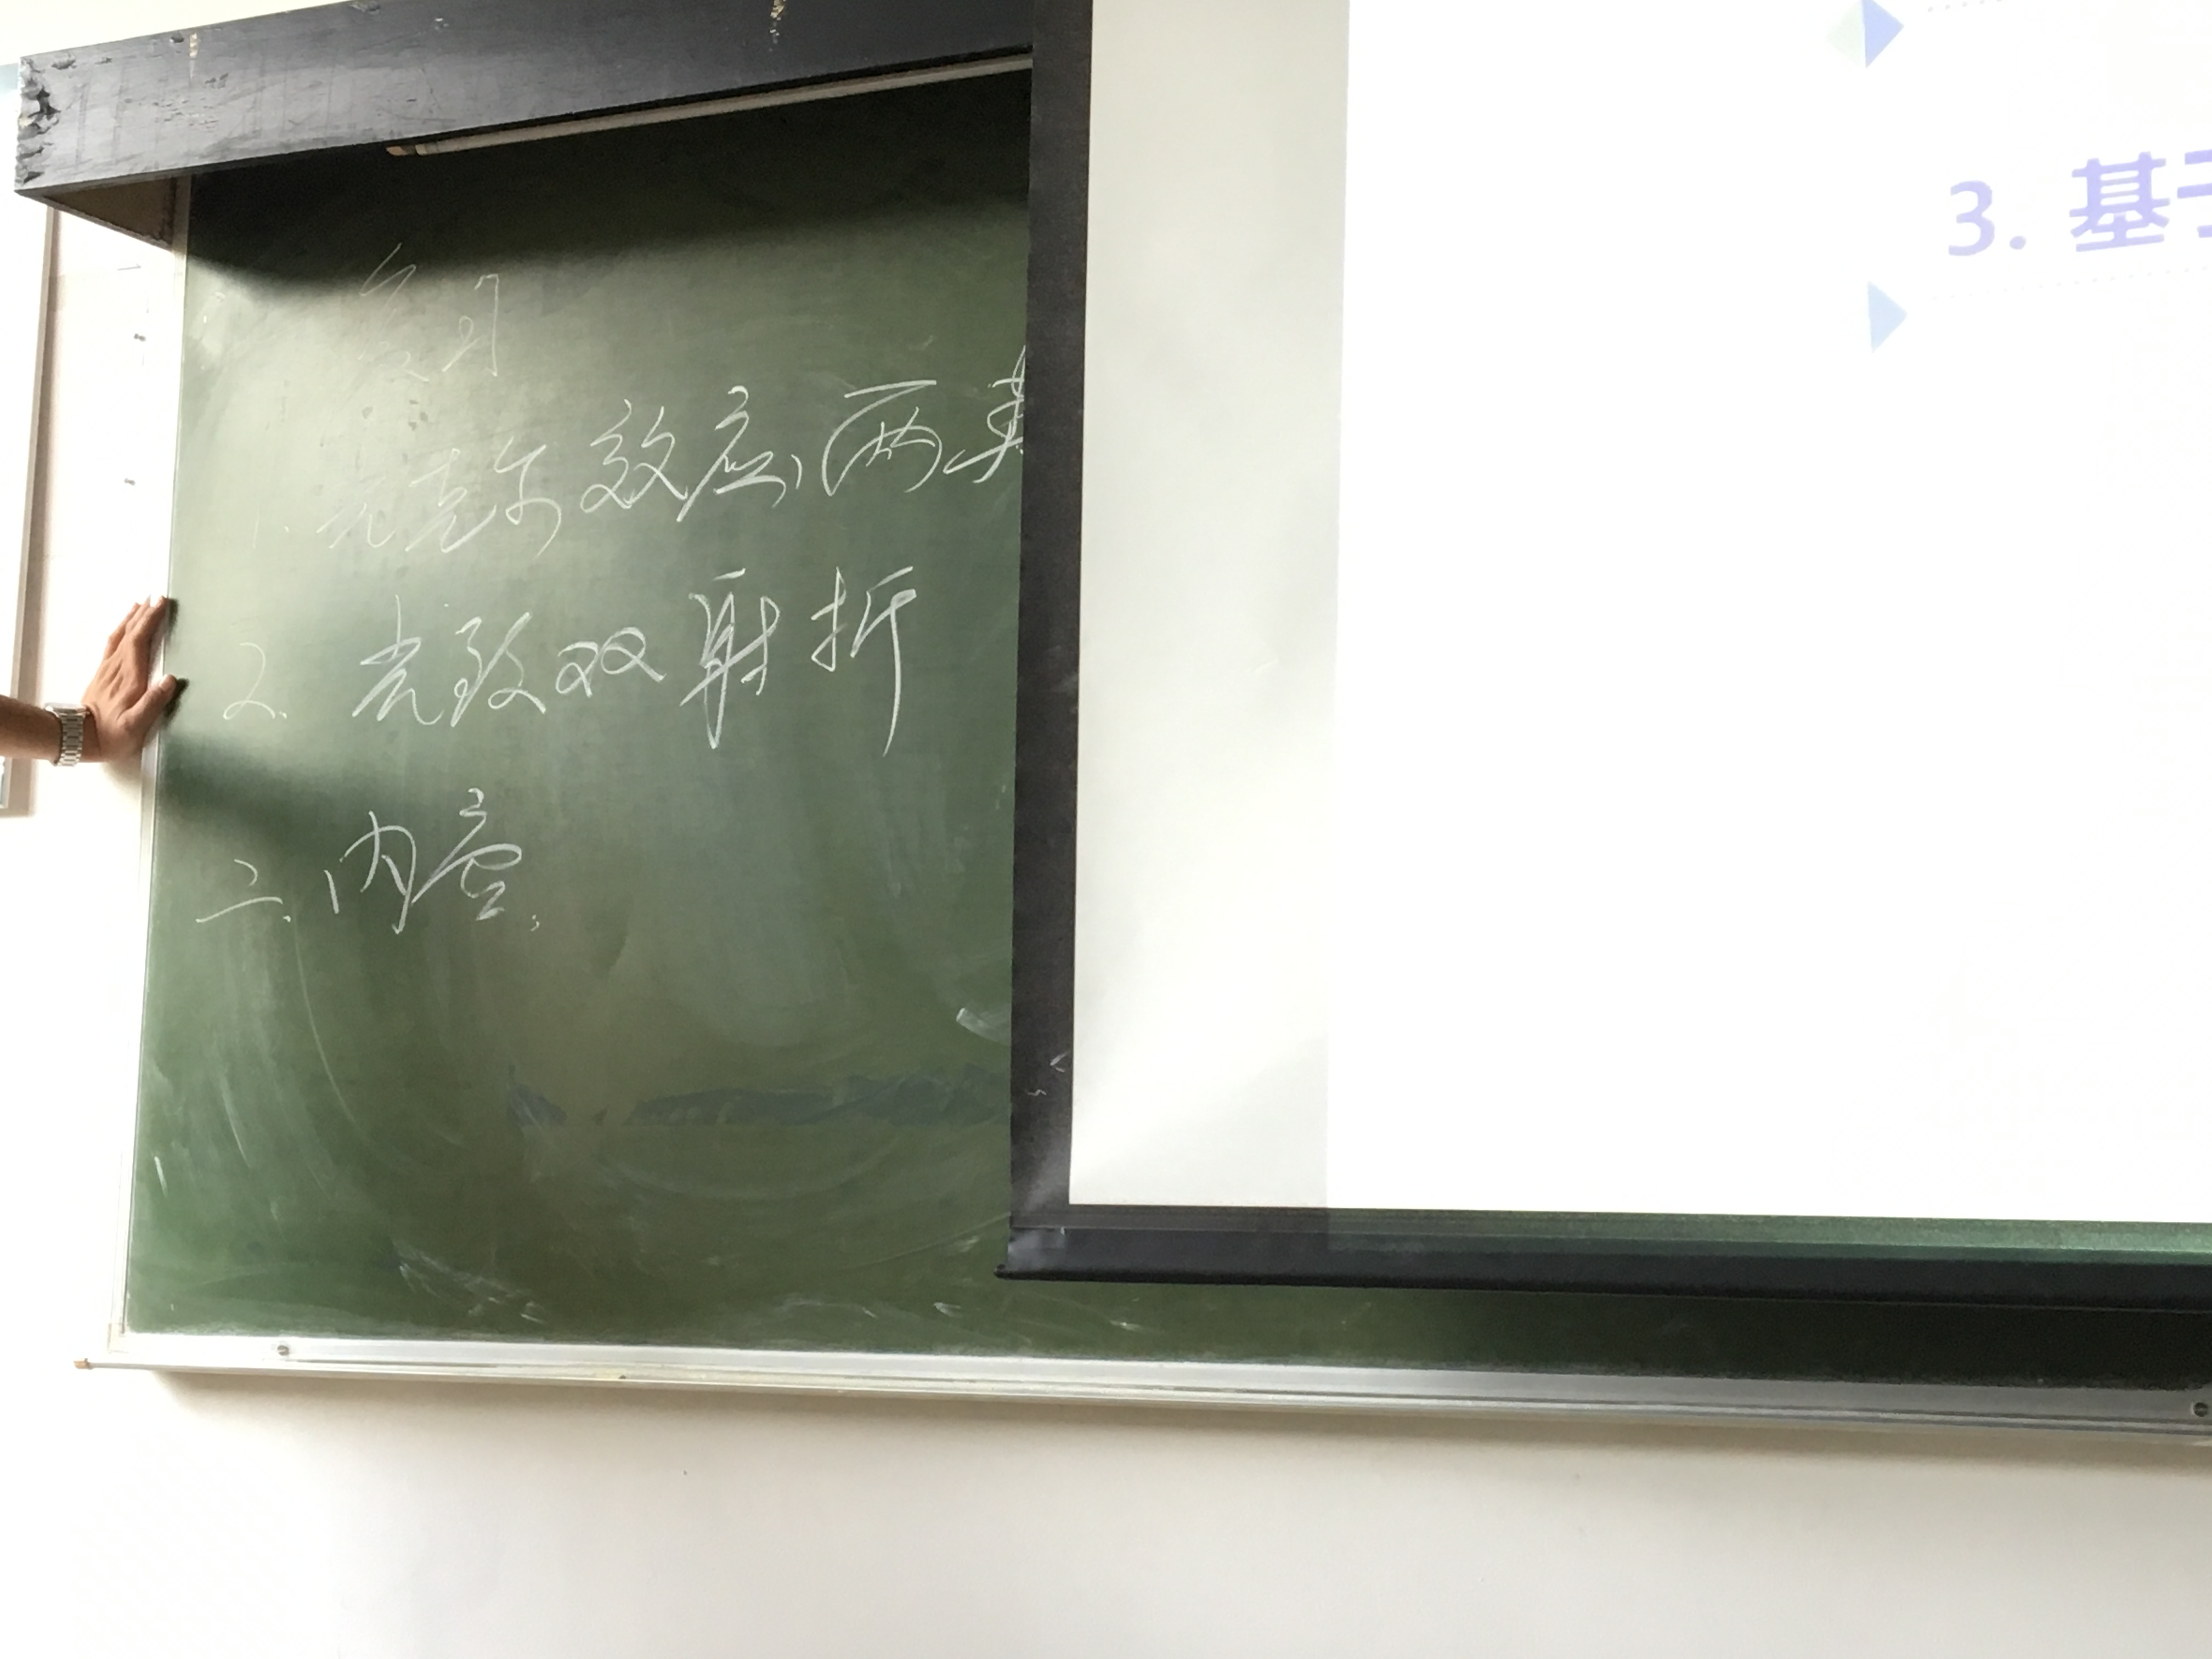 复习
1. 光克尔效应,两
2. 光致双射折
二. 内容:
3. 基